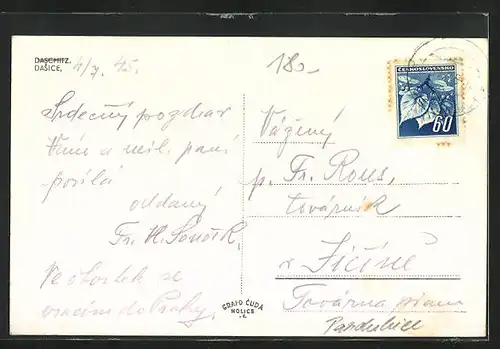 DASCHITZ.
DAŠICE, 4/7. 45.
180-
ČESKOSLOVENSKO
60
Srdečný pozdrav
Vám a mil. paní
posílá
oddaný
Fr. H.
Ve čtvrtek se
vracím do Prahy.
GRAFO ČUDA
HOLICE
Vážený
p. Fr. Rous,
továrník
v Jičíně
Továrna
Pardubice